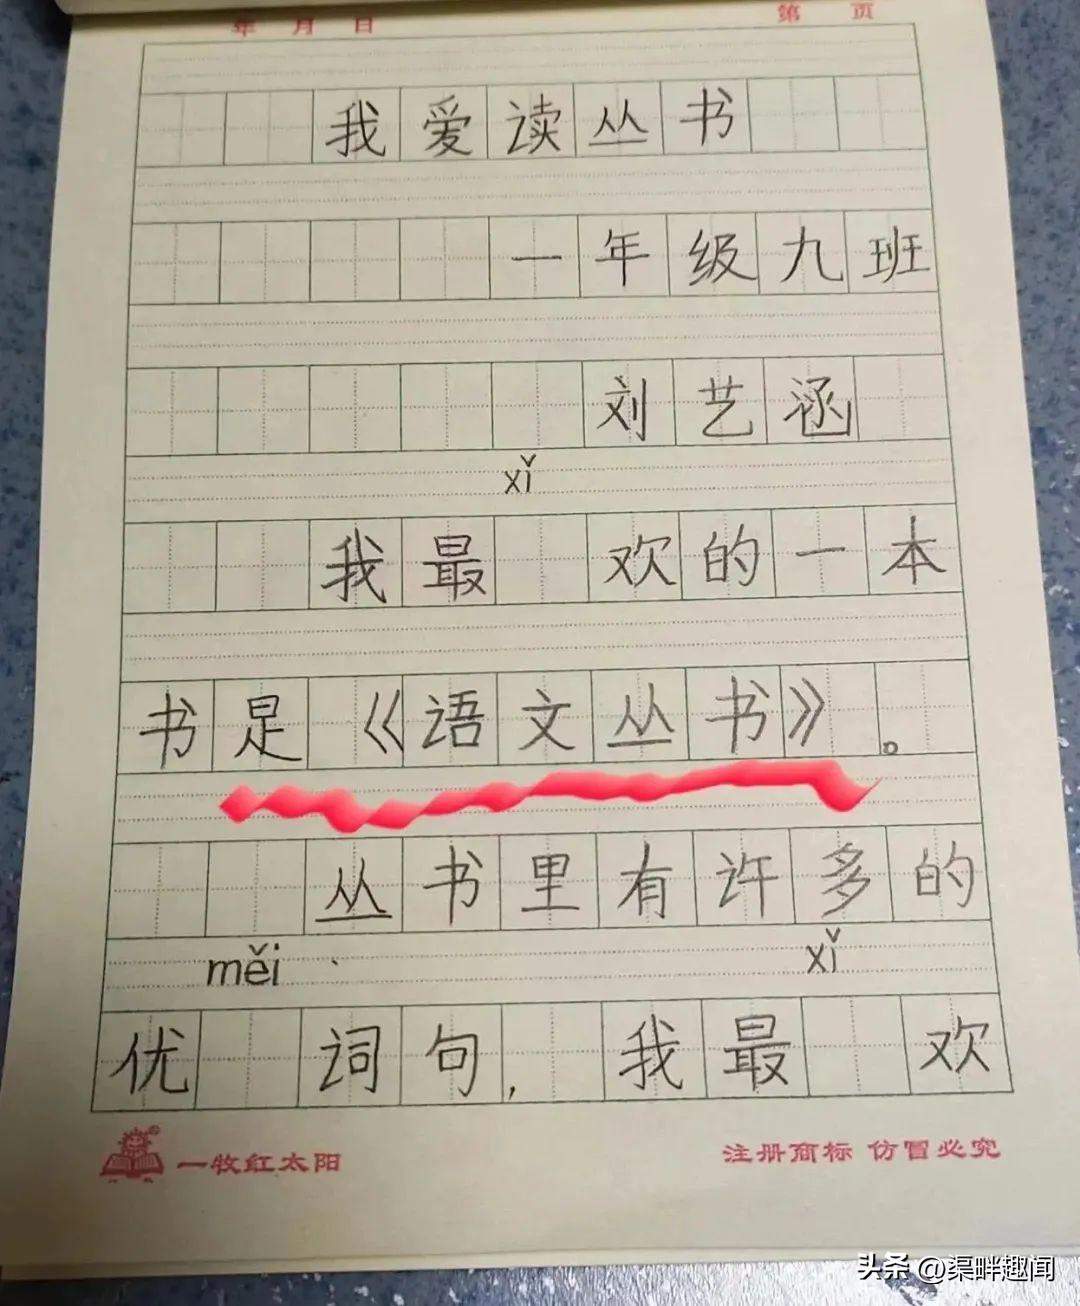 年 月 日 第 页
我爱读丛书
一年级九班
刘艺涵
xǐ
我最 欢的一本
书是《语文丛书》。
丛书里有许多的
měi xǐ
优 词句, 我最 欢
一牧红太阳 注册商标 仿冒必究
头条 @渠畔趣闻